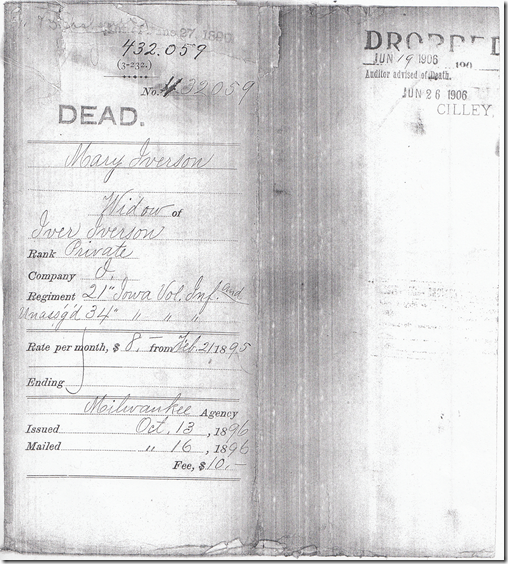 27, 1890
432.059
(3-232.)
No. 432059
DEAD.
Mary Iverson
Widow of
Iver Iverson
Rank Private
Company
Regiment 21" Iowa Vol. Inf. and
Unass'g'd 34" " " "
Rate per month, $ 8.— from Feb. 21 1895
Ending
Milwaukee Agency
Issued Oct. 13, 1896
Mailed " 16, 1896
Fee, $ 10,—
DROPPED
JUN 19 1906 190
Auditor advised of Death.
JUN 26 1906
CILLEY,